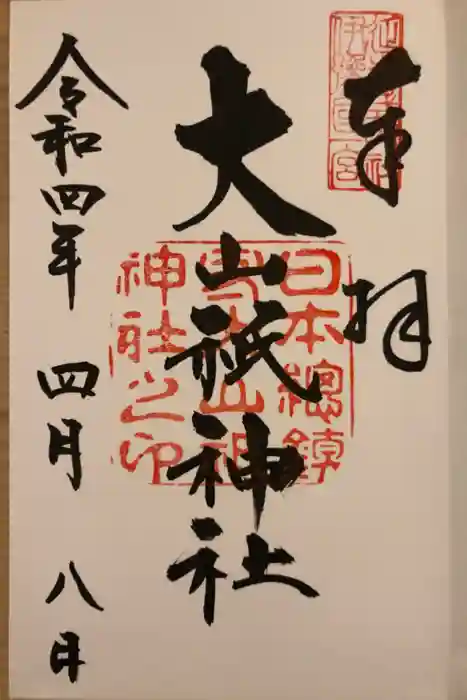 奉拝
大山祇神社
日本總鎮
守大山祇
神社之印
令和四年 四月 八日